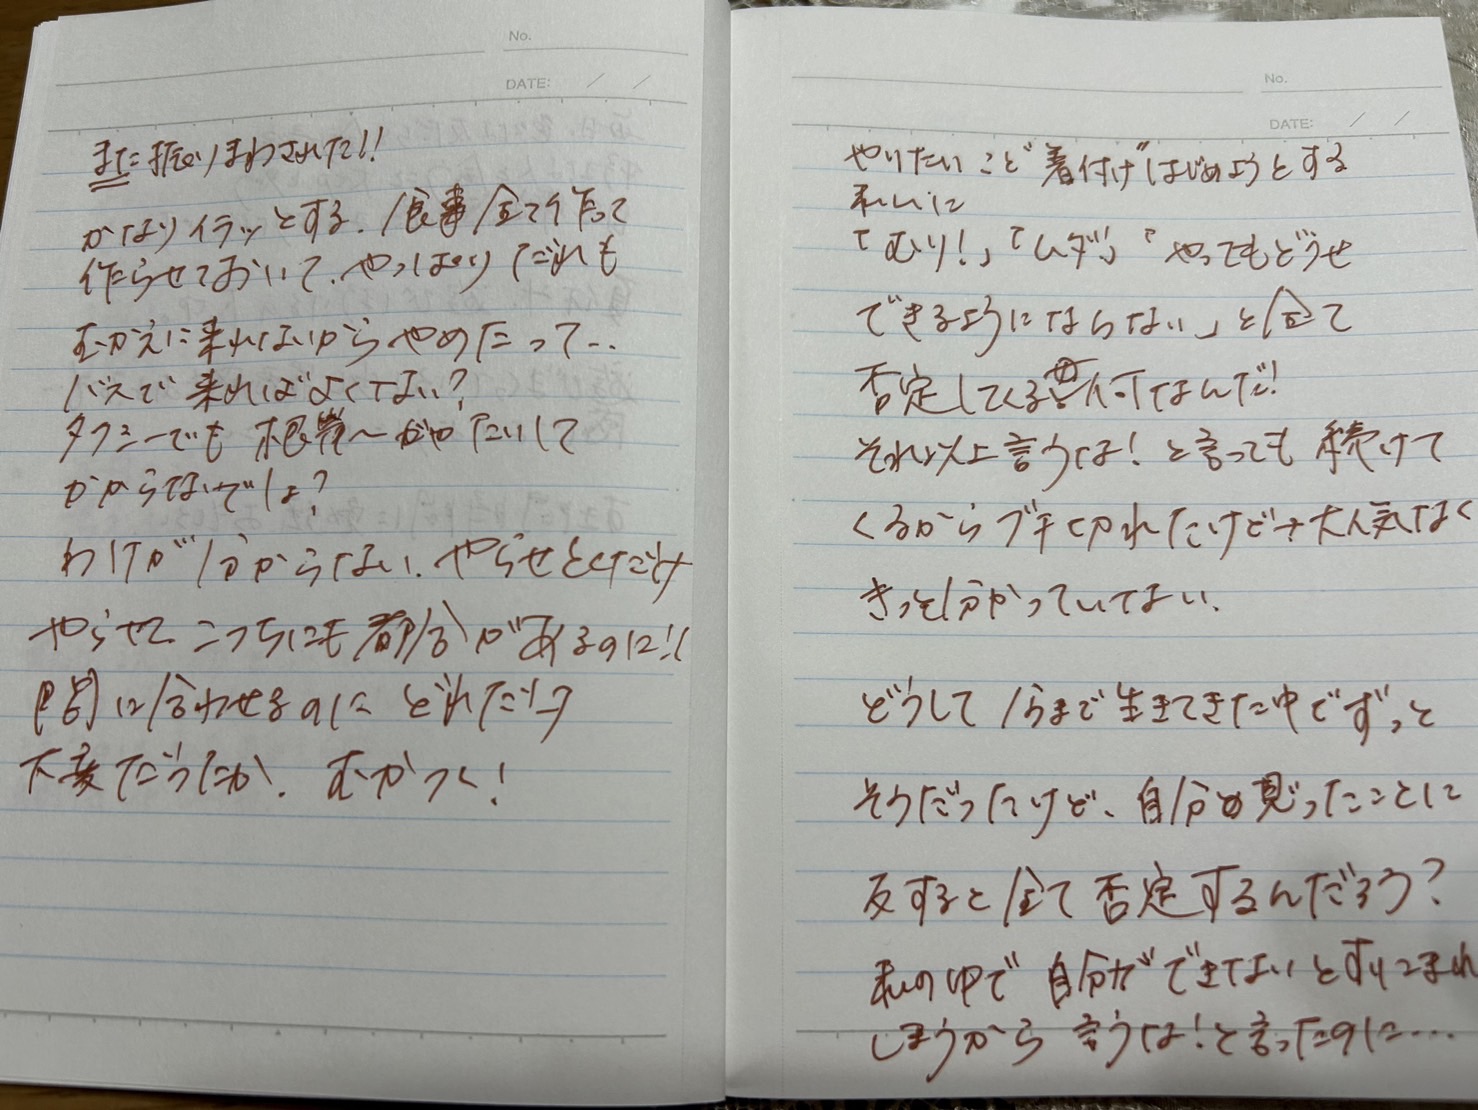 No.
DATE: / /
また振りまわされた!!
かなりイラッとする。食事全て作って
作らせておいて、やっぱりだれも
むかえに来れないからやめたって...
バスで来ればよくない?
タクシーでも根岸〜だからたいして
かからないでしょ?
わけが分からない、やらせとくだけ
やらせてこっちにも都合があるのに!!
時間に合わせるのにどれだけ
大変だったか。むかつく!
No.
DATE: / /
やりたいこと"着付け"はじめようとする
私に
「むり!」「ムダ!」「やってもどうせ
できるようにならない」と全て
否定してくる母何なんだ!
それ以上言うな!と言っても続けて
くるからブチ切れたけど→大人気なく
きっと分かっていない。
どうして今まで生きてきた中でずっと
そうだったけど、自分の思ったことに
反すると全て否定するんだろう?
私の中で自分ができないとすりこまれ
しまうから言うな!と言ったのに...